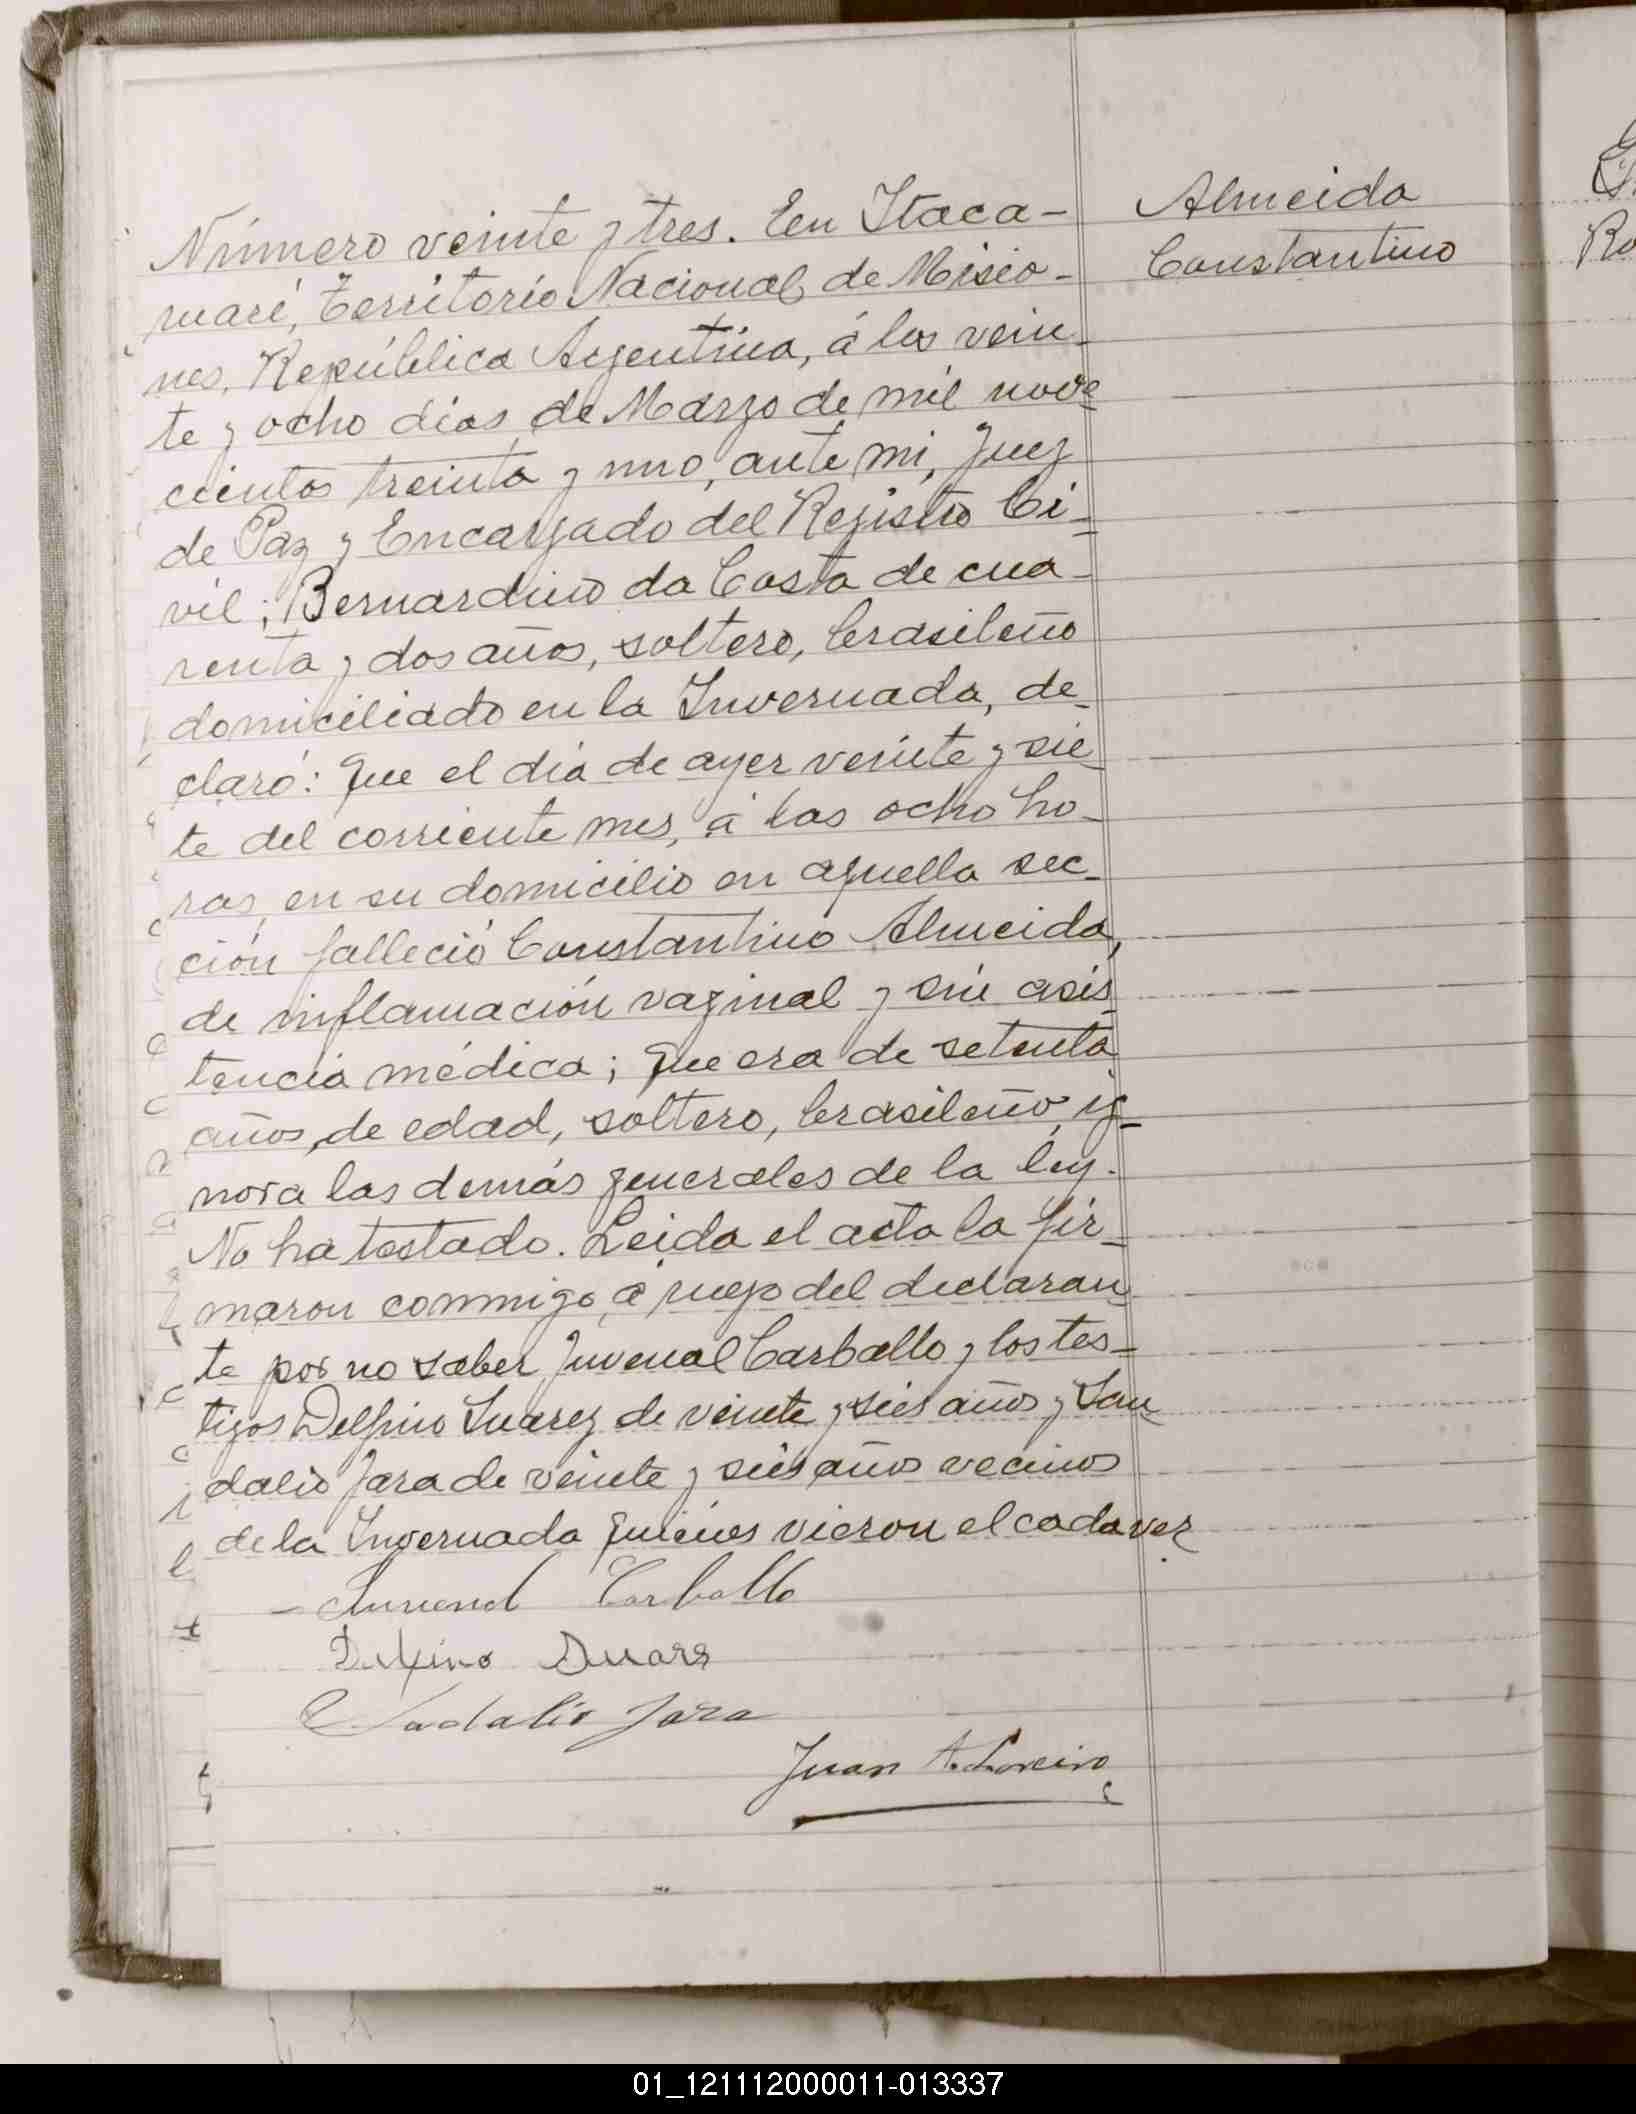 Número veinte y tres. En Itaca-
ruaré, Territorio Nacional de Misio-
nes, República Argentina, á los vein-
te y ocho dias de Marzo de mil nove-
cientos treinta y uno, ante mi, Juez
de Paz y Encargado del Registro Ci-
vil; Bernardino da Costa de cua-
renta y dos años, soltero, brasileño
domiciliado en la Invernada, de-
claró: Que el dia de ayer veinte y sie-
te del corriente mes, á las ocho ho-
ras, en su domicilio en aquella sec-
ción falleció Constantino Almeida,
de inflamación vaginal y sin asis-
tencia médica; que era de setenta
años de edad, soltero, brasileño, ig-
nora las demás generales de la ley.
No ha testado. Leida el acta la fir-
maron conmigo, á ruego del declaran-
te por no saber Juvenal Carballo y los tes-
tigos Delfino Suarez de veinte y seis años y San-
dalio Jara de veinte y seis años vecinos
de la Invernada quienes vieron el cadaver
Juvenal Carballo
Delfino Suarz
Sadalio Jara
Juan A.
Almeida
Constantino
Ro
01_121112000011-013337